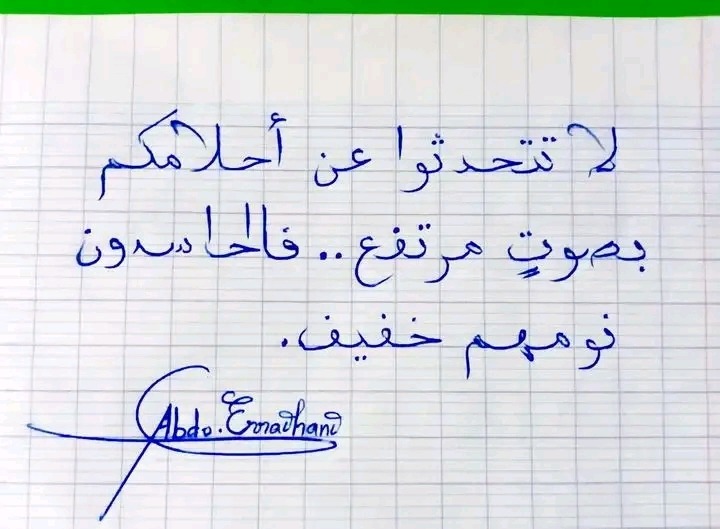 لا تتحدثوا عن أحلامكم
بصوتٍ مرتفع.. فالحاسدون
نومهم خفيف.
Abdo.